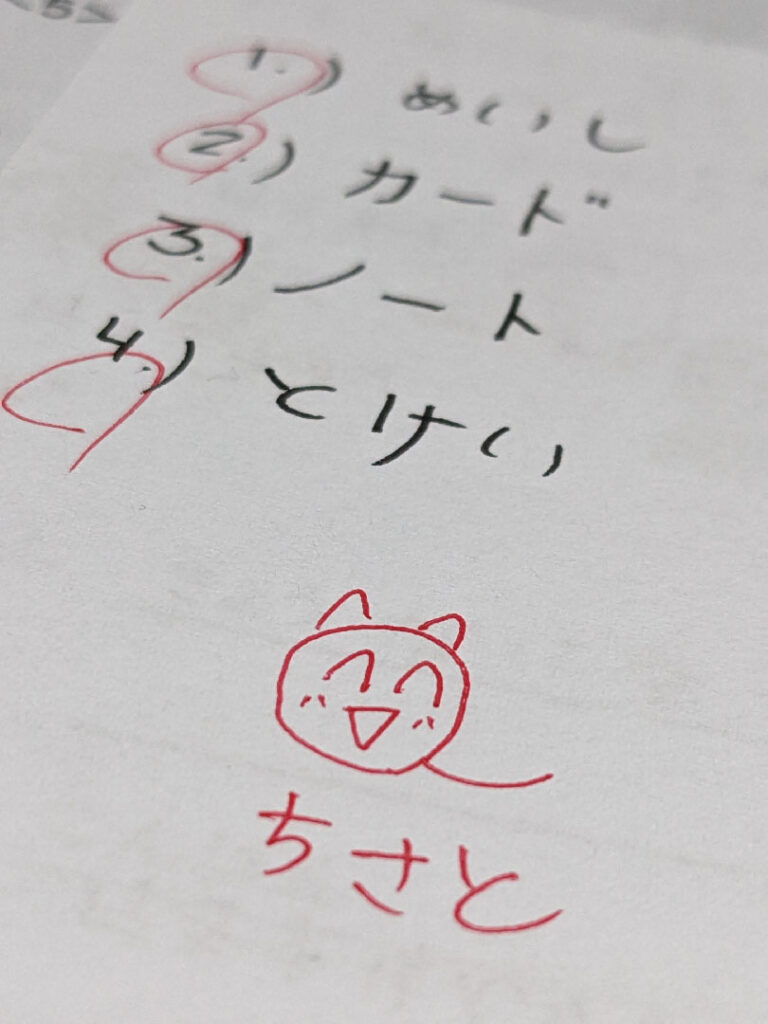 1.) めいし
2.) カード
3.) ノート
4.) とけい
ちさと